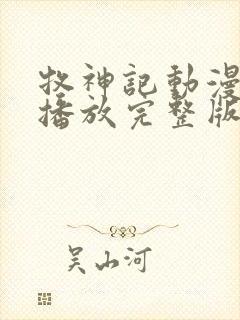 牧神記動漫
播放完整版
吴山河